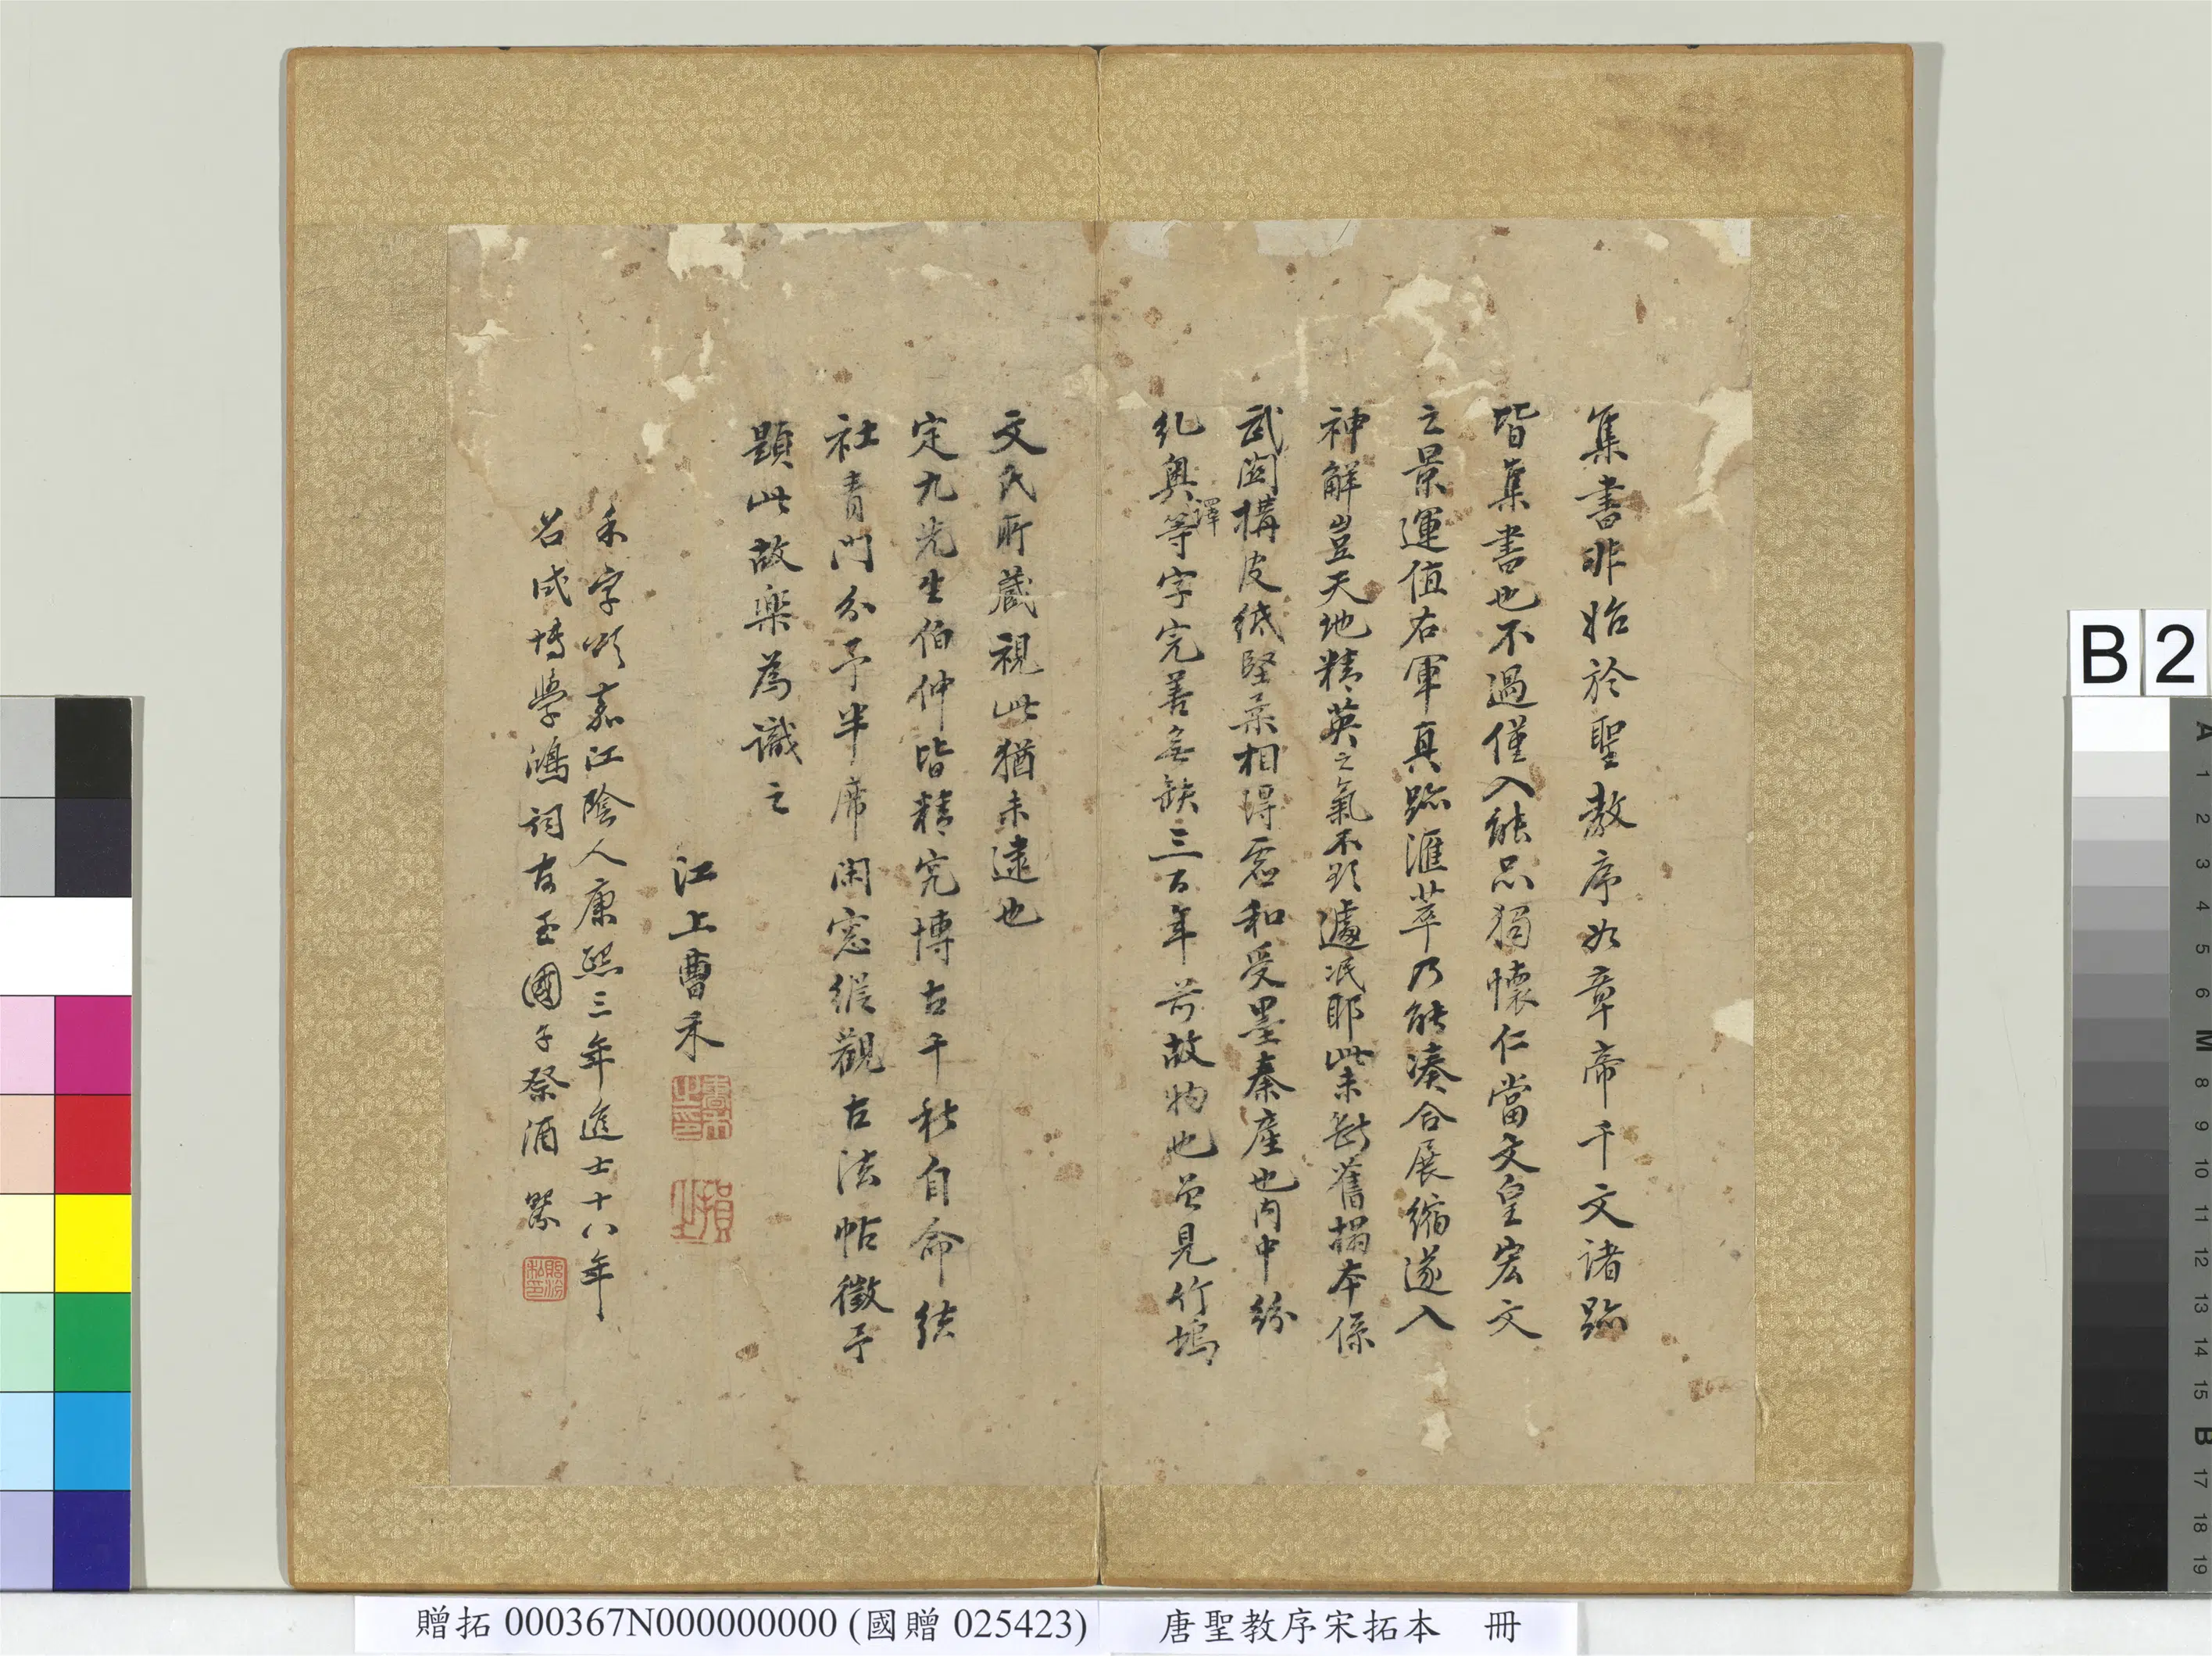 集書非始於聖教序如章帝千文諸跡
皆集書也不過僅入能品獨懷仁當文皇宏文
之景運值右軍真跡滙萃乃能湊合展縮遂入
神解豈天地精英之氣不欲遽泯耶此未斷舊搨本係
武關構皮紙堅柔相得虛和受墨秦產也內中紛
糺奥等字完善無缺三百年前故物也曾見竹塢
譯
文氏所藏視此猶未逮也
定九先生伯仲皆精究博古千秋自命結
社青門分予半席閑窓縱觀古法帖徵予
題此故樂為識之
江上曹禾
曹禾之印
禾字頌嘉江陰人康熙三年進士十八年
召試博學鴻詞官至國子祭酒
B 2
A 1 2 3 4 5 6 M 8 9 10 11 12 13 14 15 B 17 18 19
贈拓 000367N000000000 (國贈 025423) 唐聖教序宋拓本 冊